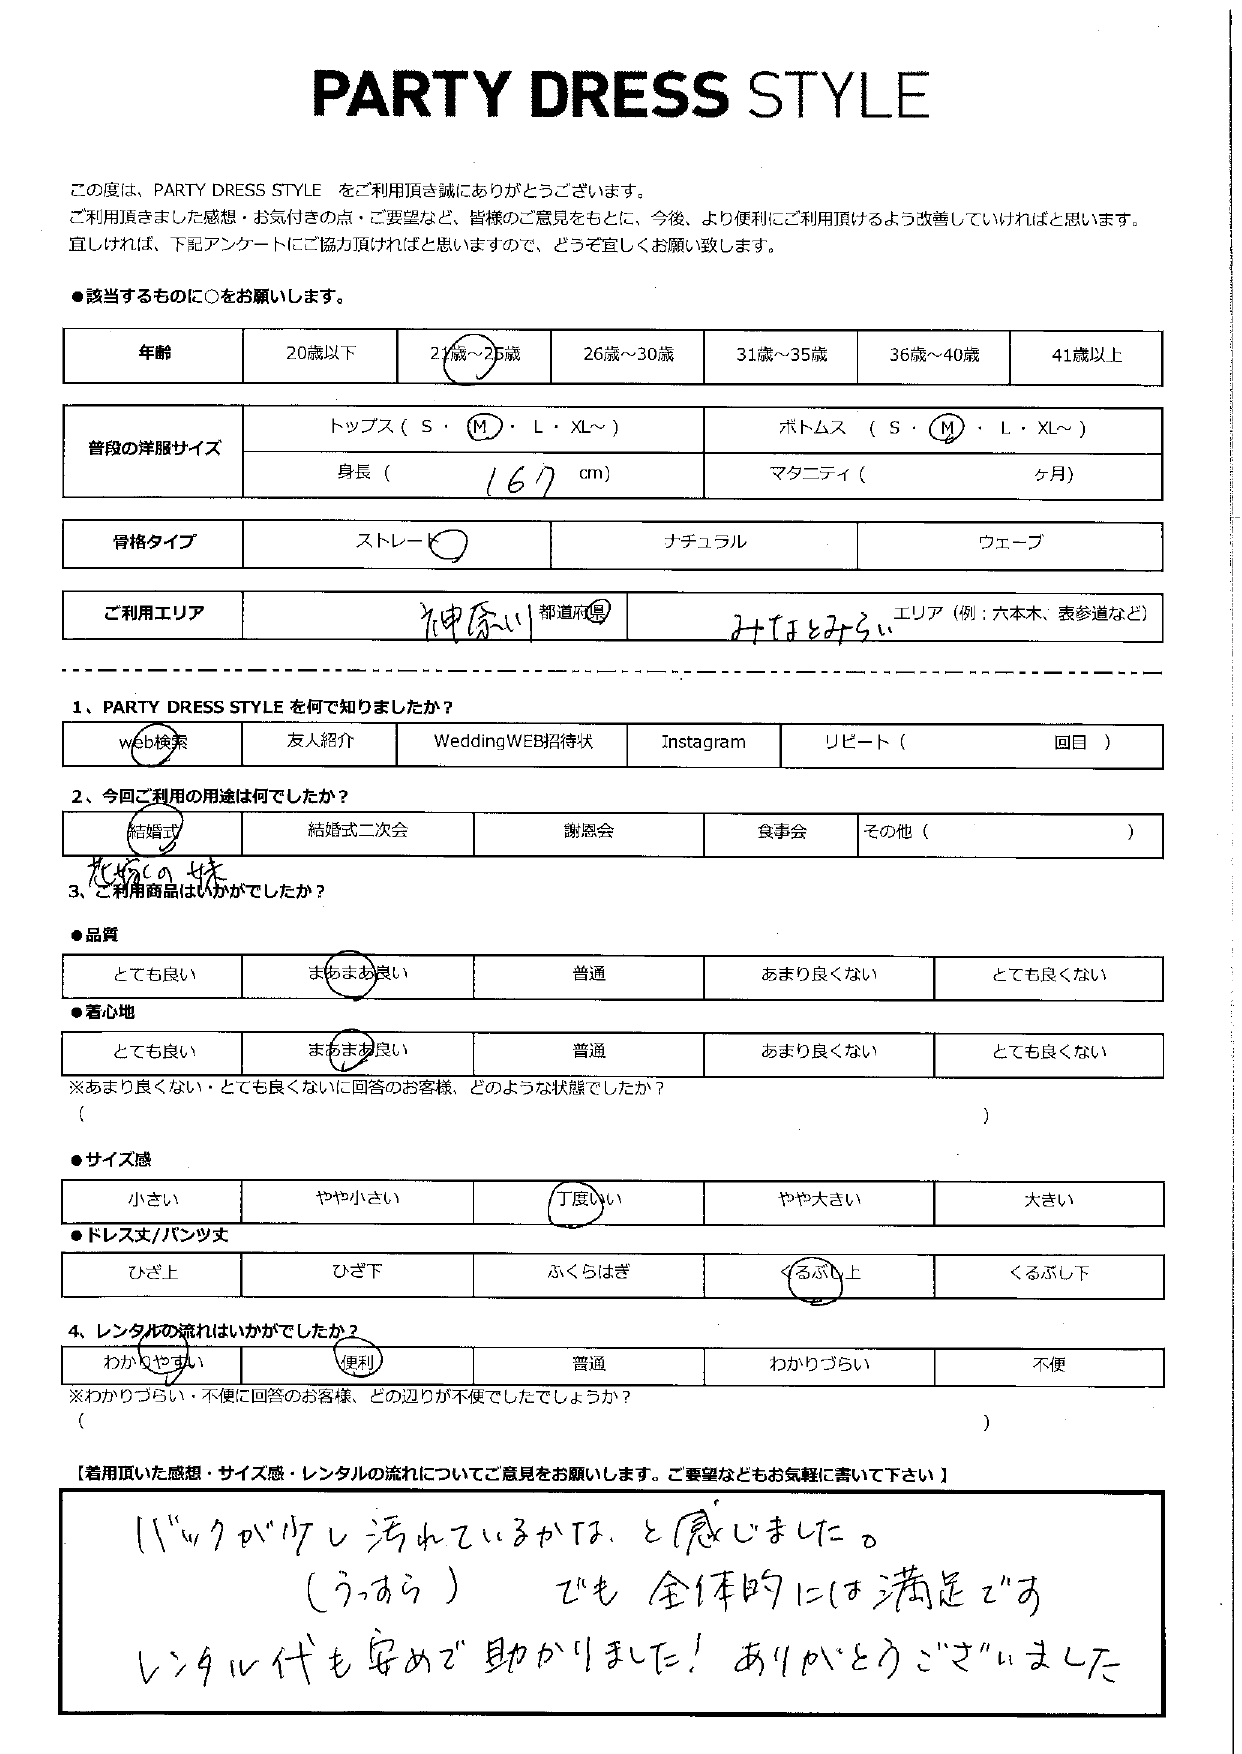 PARTY DRESS STYLE
この度は、PARTY DRESS STYLE をご利用頂き誠にありがとうございます。
ご利用頂きました感想・お気付きの点・ご要望など、皆様のご意見をもとに、今後、より便利にご利用頂けるよう改善していければと思います。
宜しければ、下記アンケートにご協力頂ければと思いますので、どうぞ宜しくお願い致します。
●該当するものに○をお願いします。
年齢 20歳以下 21歳～25歳 26歳～30歳 31歳～35歳 36歳～40歳 41歳以上
普段の洋服サイズ トップス ( S ・ M ・ L ・ XL～ ) ボトムス ( S ・ M ・ L ・ XL～ )
身長 ( 167 cm) マタニティ ( ヶ月)
骨格タイプ ストレート ナチュラル ウェーブ
ご利用エリア 神奈川 都道府県 みなとみらい エリア（例：六本木、表参道など）
1、PARTY DRESS STYLE を何で知りましたか？
web検索 友人紹介 WeddingWEB招待状 Instagram リピート ( 回目 )
2、今回ご利用の用途は何でしたか？
結婚式 結婚式二次会 謝恩会 食事会 その他 ( )
花嫁の妹
3、ご利用商品はいかがでしたか？
●品質
とても良い まあまあ良い 普通 あまり良くない とても良くない
●着心地
とても良い まあまあ良い 普通 あまり良くない とても良くない
※あまり良くない・とても良くないに回答のお客様、どのような状態でしたか？
( )
●サイズ感
小さい やや小さい 丁度いい やや大きい 大きい
●ドレス丈/パンツ丈
ひざ上 ひざ下 ふくらはぎ くるぶし上 くるぶし下
4、レンタルの流れはいかがでしたか？
わかりやすい 便利 普通 わかりづらい 不便
※わかりづらい・不便に回答のお客様、どの辺りが不便でしたでしょうか？
( )
【着用頂いた感想・サイズ感・レンタルの流れについてご意見をお願いします。ご要望などもお気軽に書いて下さい】
バックが少し汚れているかな、と感じました。
(うっすら) でも 全体的には満足です
レンタル代も安めで助かりました！ありがとうございました